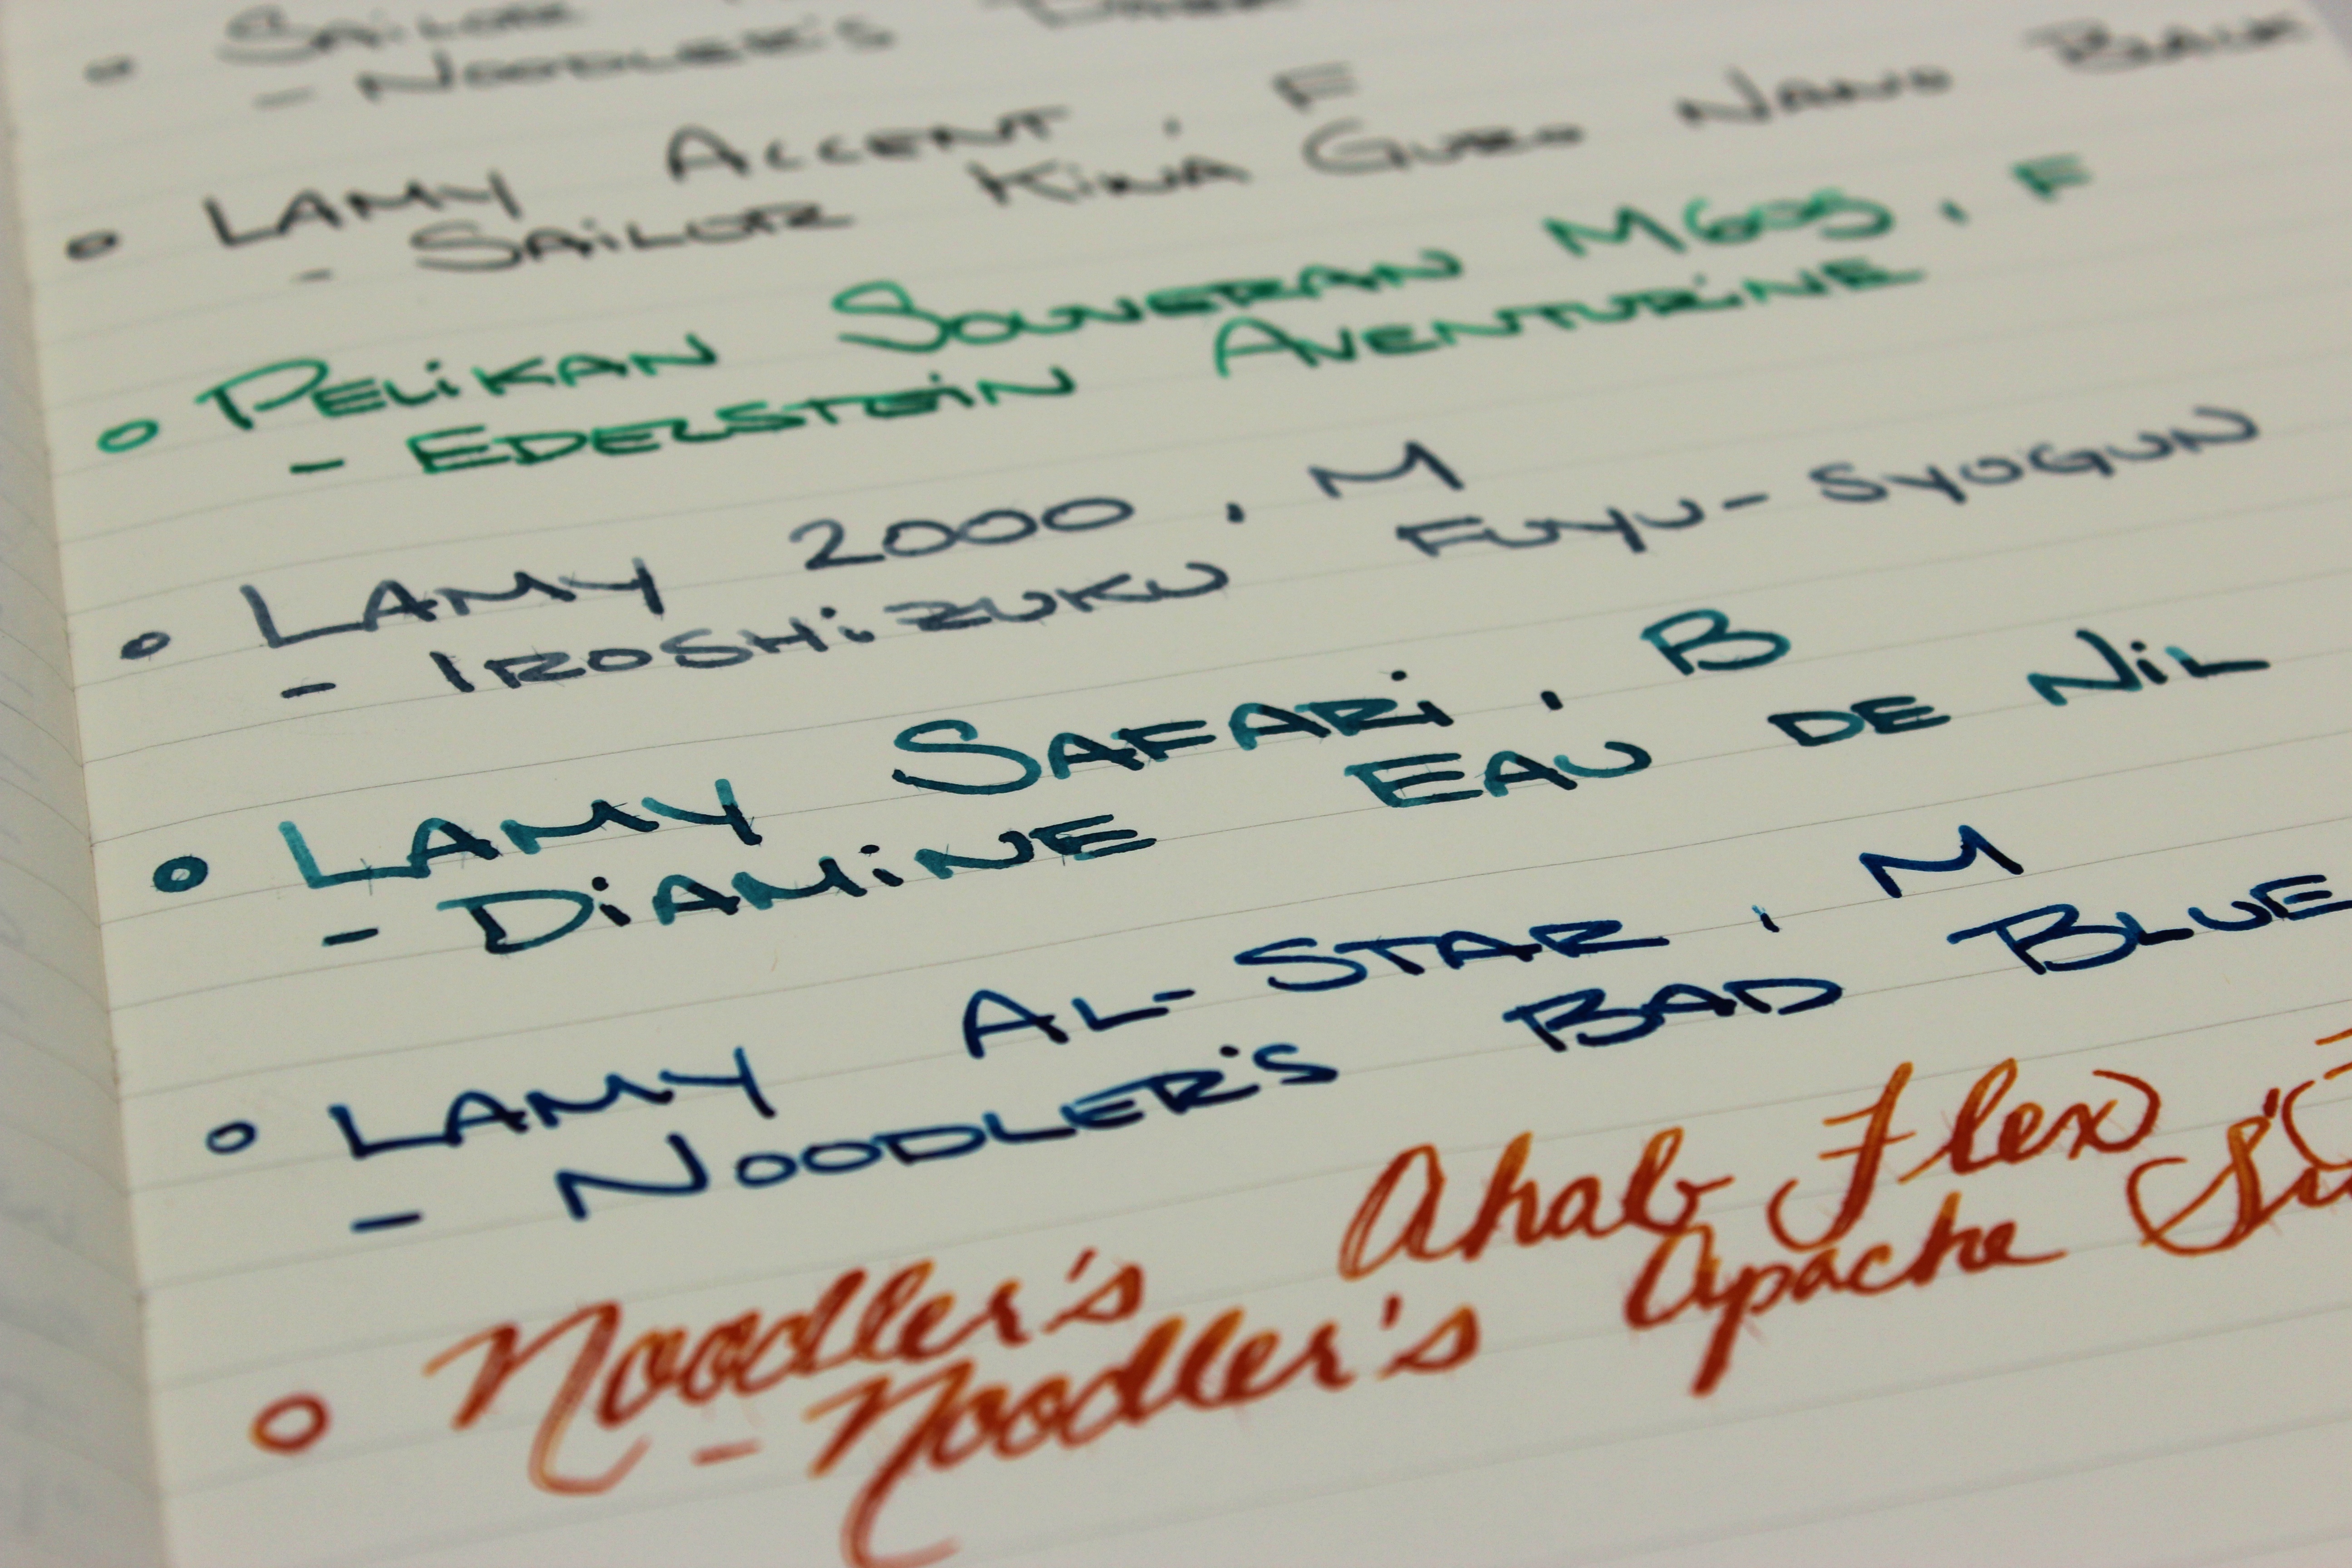 ° SAiLOR
- NOODLER'S
° LAMY ACCENT, F
- SAiLOR KiWA GURO NANO BLACK
° PELiKAN SOUVERAN M605, F
- EDELSTEiN AVENTURiNE
° LAMY 2000, M
- IROSHiZUKU FUYU-SYOGUN
° LAMY SAFARi, B
- DiAMiNE EAU DE NiL
° LAMY AL-STAR, M
- NOODLER'S BAD BLUE
° Noodler's Ahab Flex
- Noodler's Apache Su